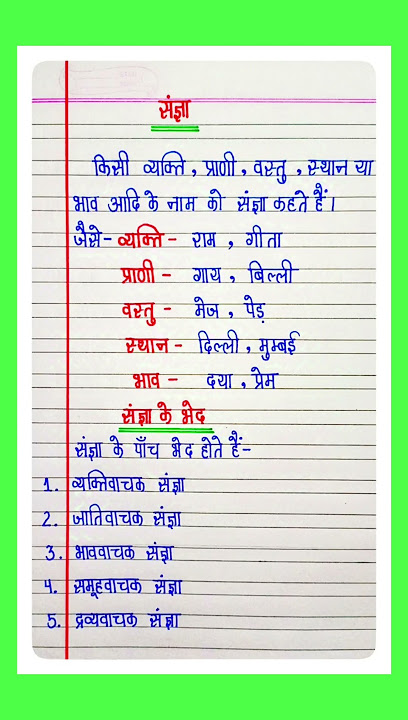 संज्ञा
किसी व्यक्ति , प्राणी , वस्तु , स्थान या
भाव आदि के नाम को संज्ञा कहते हैं।
जैसे- व्यक्ति - राम , गीता
प्राणी - गाय , बिल्ली
वस्तु - मेज , पेड़
स्थान - दिल्ली , मुम्बई
भाव - दया , प्रेम
संज्ञा के भेद
संज्ञा के पाँच भेद होते हैं-
1. व्यक्तिवाचक संज्ञा
2. जातिवाचक संज्ञा
3. भाववाचक संज्ञा
4. समूहवाचक संज्ञा
5. द्रव्यवाचक संज्ञा